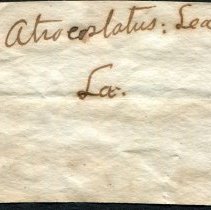 Atrocostatus: Lea
La.